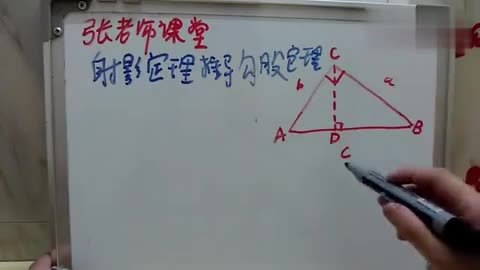 张老师课堂
射影定理推导勾股定理
C
b
a
A
D
B
C